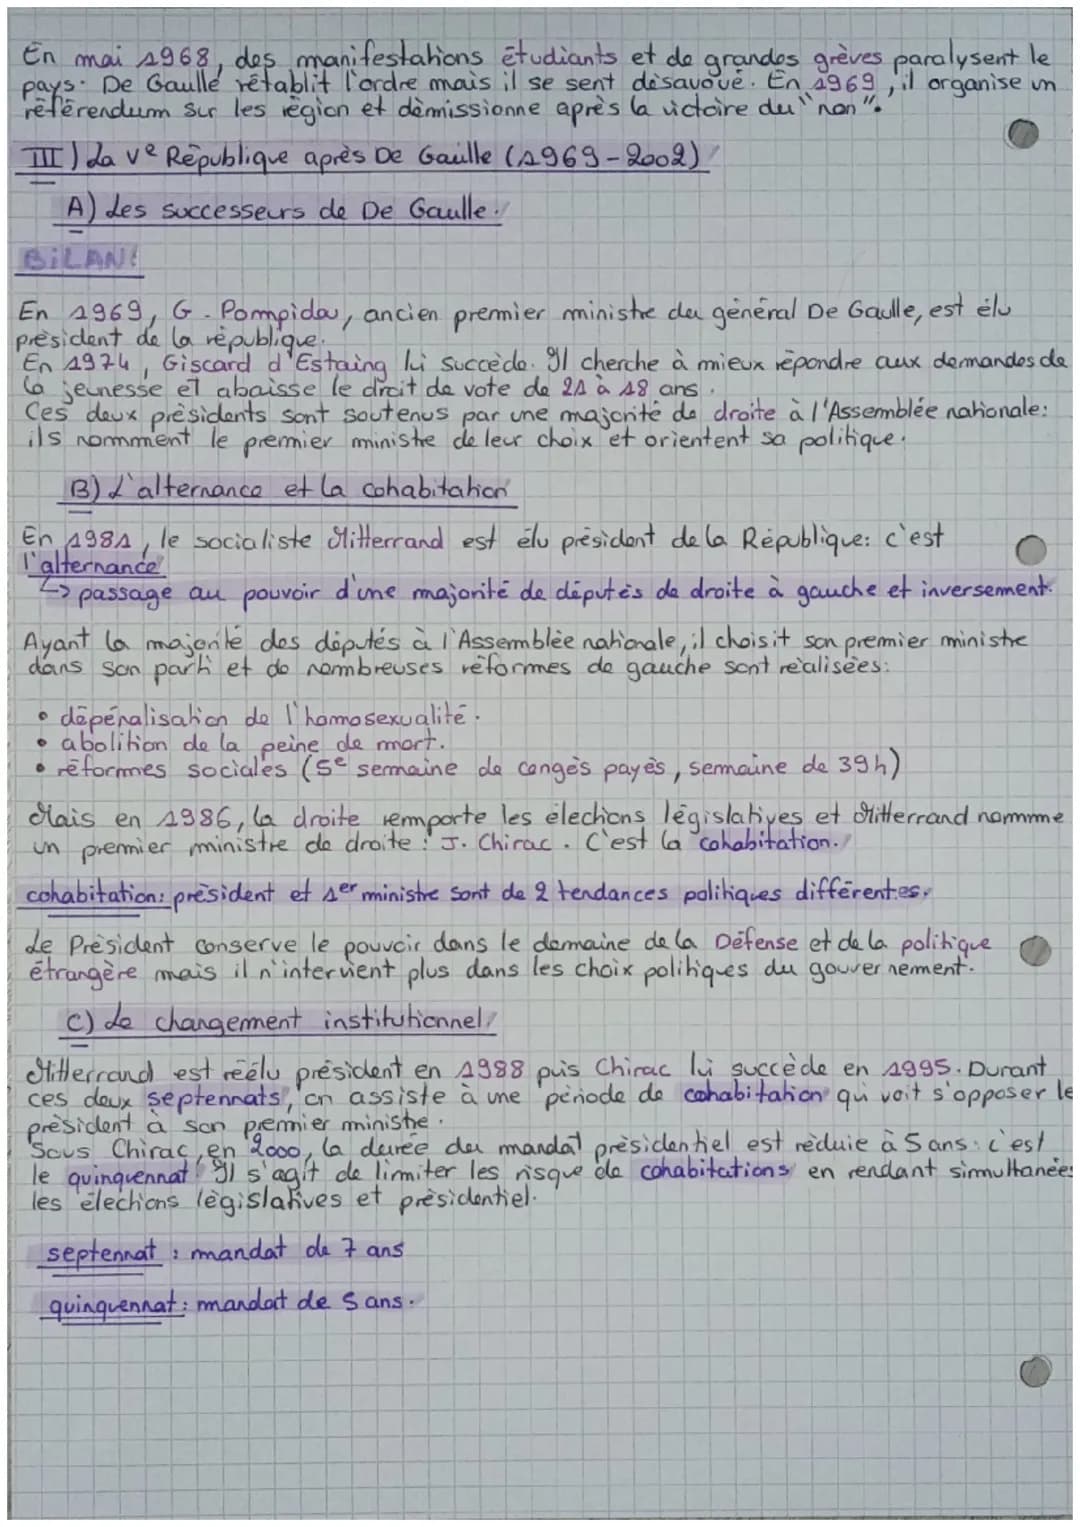 En mai 1968, des manifestations étudiants et de grandes grèves paralysent le
pays. De Gaulle rétablit l'ordre mais il se sent désavoué. En 1969, il organise un
référendum sur les région et démissionne après la victoire du "non".
III) La Ve République après De Gaulle (1969-2002)
A) Les successeurs de De Gaulle.
BILAN:
En 1969, G. Pompidou, ancien premier ministre du général De Gaulle, est élu
président de la république.
En 1974, Giscard d'Estaing lui succède. Il cherche à mieux répondre aux demandes de
la jeunesse et abaisse le droit de vote de 21 à 18 ans.
Ces deux présidents sont soutenus par une majorité de droite à l'Assemblée nationale:
ils nomment le premier ministre de leur choix et orientent sa politique.
B) L'alternance et la cohabitation
En 1981, le socialiste Mitterrand est élu président de la République: c'est
l'alternance
↳ passage au pouvoir d'une majorité de députés de droite à gauche et inversement.
Ayant la majorité des députés à l'Assemblée nationale, il choisit son premier ministre
dans son parti et de nombreuses réformes de gauche sont réalisées:
• dépénalisation de l'homosexualité.
• abolition de la peine de mort.
• réformes sociales (5e semaine de congés payés, semaine de 39h)
Mais en 1986, la droite remporte les élections législatives et Mitterrand nomme
un premier ministre de droite: J. Chirac. C'est la cohabitation.
cohabitation: président et 1er ministre sont de 2 tendances politiques différentes.
Le Président conserve le pouvoir dans le domaine de la Défense et de la politique
étrangère mais il n'intervient plus dans les choix politiques du gouvernement.
C) Le changement institutionnel
Mitterrand est réélu président en 1988 puis Chirac lui succède en 1995. Durant
ces deux septennats, on assiste à une période de cohabitation qui voit s'opposer le
président à son premier ministre.
Sous Chirac, en 2000, la durée du mandat présidentiel est réduie à 5 ans: c'est
le quinquennat. Il s'agit de limiter les risque de cohabitations en rendant simultanées
les élections législatives et présidentiel.
septennat: mandat de 7 ans
quinquennat: mandat de 5 ans.